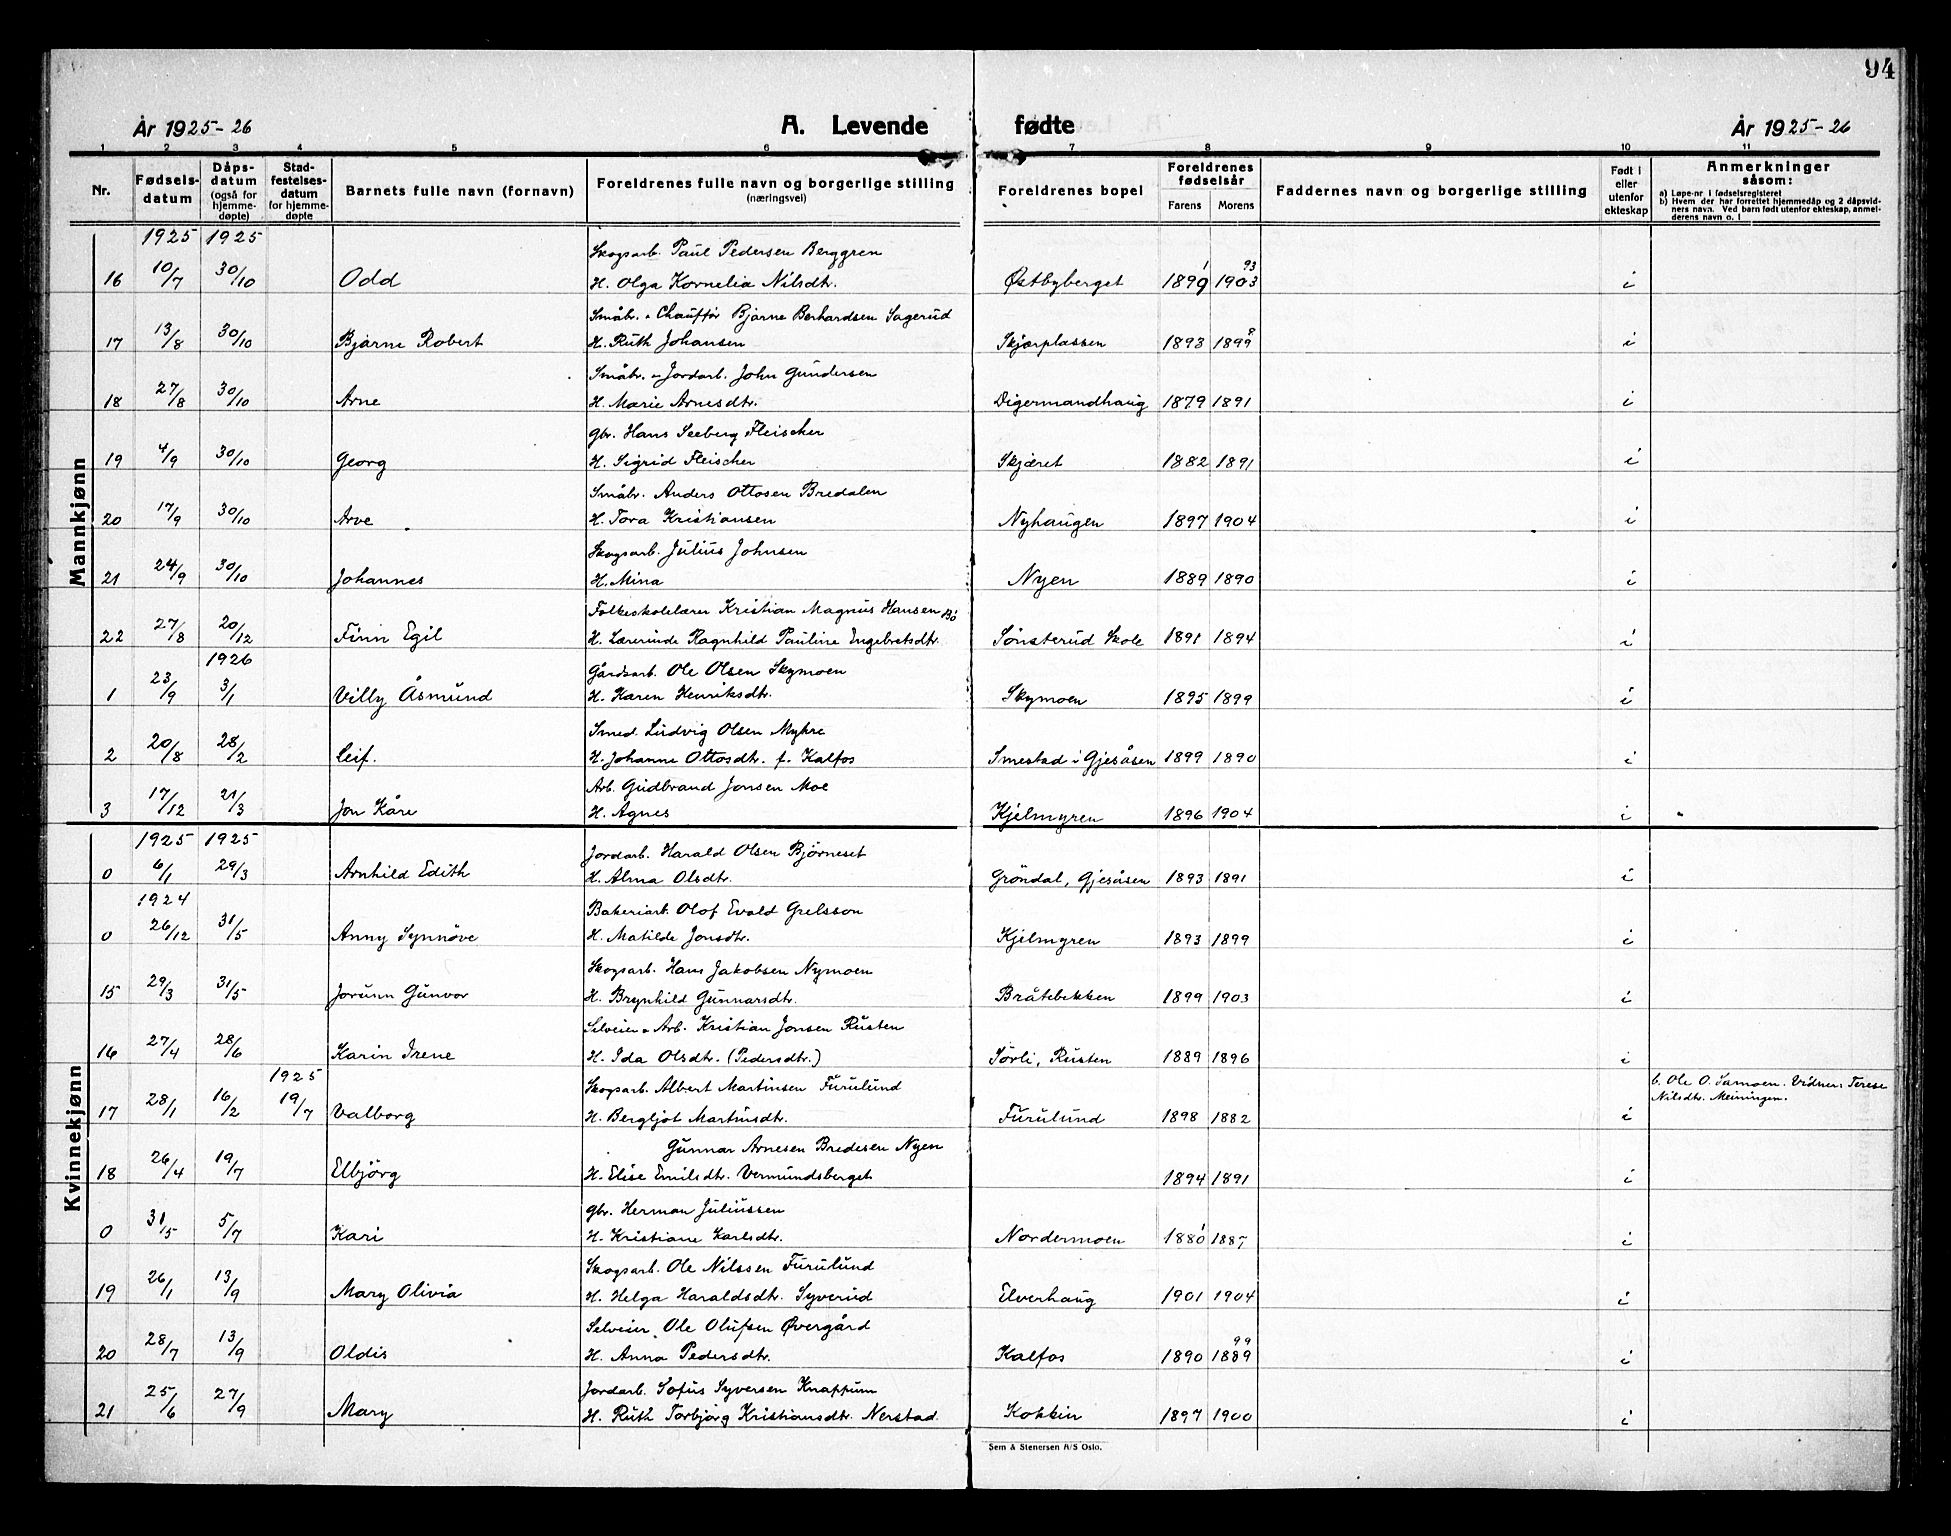 94
År 1925-26 A. Levende fødte År 1925-26
1 2 3 4 5 6 7 8 9 10 11
Nr. Fødselsdatum Dåpsdatum (også for hjemmedøpte) Stadfestelsesdatum for hjemmedøpte Barnets fulle navn (fornavn) Foreldrenes fulle navn og borgerlige stilling (næringsvei) Foreldrenes bopel Foreldrenes fødselsår Farens Morens Faddernes navn og borgerlige stilling Født i eller utenfor ekteskap Anmerkninger såsom: a) Løpe-nr. i fødselsregisteret b) Hvem der har forrettet hjemmedåp og 2 dåpsvidners navn. Ved barn født utenfor ekteskap, anmelderens navn o. l
Mannkjønn
1925 1925 Skogsarb. Paul Pedersen Berggren
16 10/7 30/10 Odd H. Olga Kornelia Nilsdtr. Østbyberget 1899 1 1903 93 i
Småbr. & Chauffør Bjarne Berhardsen Sagerud
17 13/8 30/10 Bjarne Robert H. Ruth Johansen Skjærplassen 1893 1899 8 i
Småbr. & Jordarb. John Gundersen
18 27/8 30/10 Arne H. Marie Arnesdtr. Digermandhaug 1879 1891 i
Gbr. Hans Seeberg Fleischer
19 4/9 30/10 Georg H. Sigrid Fleischer Skjæret 1882 1891 i
Småbr. Anders Ottosen Bredalen
20 17/9 30/10 Arve H. Tora Kristiansen Nyhaugen 1897 1904 i
Skogsarb. Julius Johnsen
21 24/9 30/10 Johannes H. Mina Nyen 1889 1890 i
Folkeskolelærer Kristian Magnus Hansen Bö
22 27/8 20/12 Finn Egil H. Lærerinde Ragnhild Pauline Engebretsdtr. Sönsterud Skole 1891 1894 i
1926 Gårdsarb. Ole Olsen Skymoen
1 23/9 3/1 Villy Åsmund H. Karen Henriksdtr. Skymoen 1895 1899 i
Smed. Ludvig Olsen Myhre
2 20/8 28/2 Leif. H. Johanne Ottosdtr. f. Kalfos Smestad i Gjesåsen 1899 1890 i
Arb. Gudbrand Jonsen Moe
3 17/12 21/3 Jon Kåre H. Agnes Kjelmyren 1896 1904 i
Kvinnekjønn
1925 1925 Jordarb. Harald Olsen Bjørneset
0 6/1 29/3 Arnhild Edith H. Alma Olsdtr. Gröndal, Gjesåsen 1893 1891 i
1924 Bakeriarb. Olof Evald Grelsson
0 26/12 31/5 Anny Synnöve H. Matilde Jonsdtr. Kjelmyren 1893 1899 i
Skogsarb. Hans Jakobsen Nymoen
15 29/3 31/5 Jorunn Gunvor H. Brynhild Gunnarsdtr. Bråtebekken 1899 1903 i
Selveier & Arb. Kristian Jonsen Rusten
16 27/4 28/6 Karin Irene H. Ida Olsdtr. (Pedersdtr.) Sörli, Rusten 1889 1896 i
1925 Skogsarb. Albert Martinsen Furulund b. Ole O. Samoen. Vidner: Terese
17 28/1 16/2 19/7 Valborg H. Bergljot Martinsdtr. Furulund 1898 1882 i Nilsdtr. Meiningen.
Gunnar Arnesen Bredesen Nyen
18 26/4 19/7 Elbjörg H. Elise Emilsdtr. Vermundsberget 1894 1891 i
Gbr. Herman Juliussen
0 31/5 5/7 Kari H. Kristiane Karlsdtr. Nordermoen 1880 1 1887 i
Skogsarb. Ole Nilssen Furulund
19 26/1 13/9 Mary Olivia H. Helga Haraldsdtr. Syverud Elverhaug 1901 1904 i
Selveier Ole Olufsen Øvergård
20 28/7 13/9 Oldis H. Anna Pedersdtr. Kalfos 1890 1889 99 i
Jordarb. Sofus Syversen Knappum
21 25/6 27/9 Mary H. Ruth Torbjörg Kristiansdtr. Nerstad. Kokkin 1897 1900 i
Sem & Stenersen A/S Oslo.